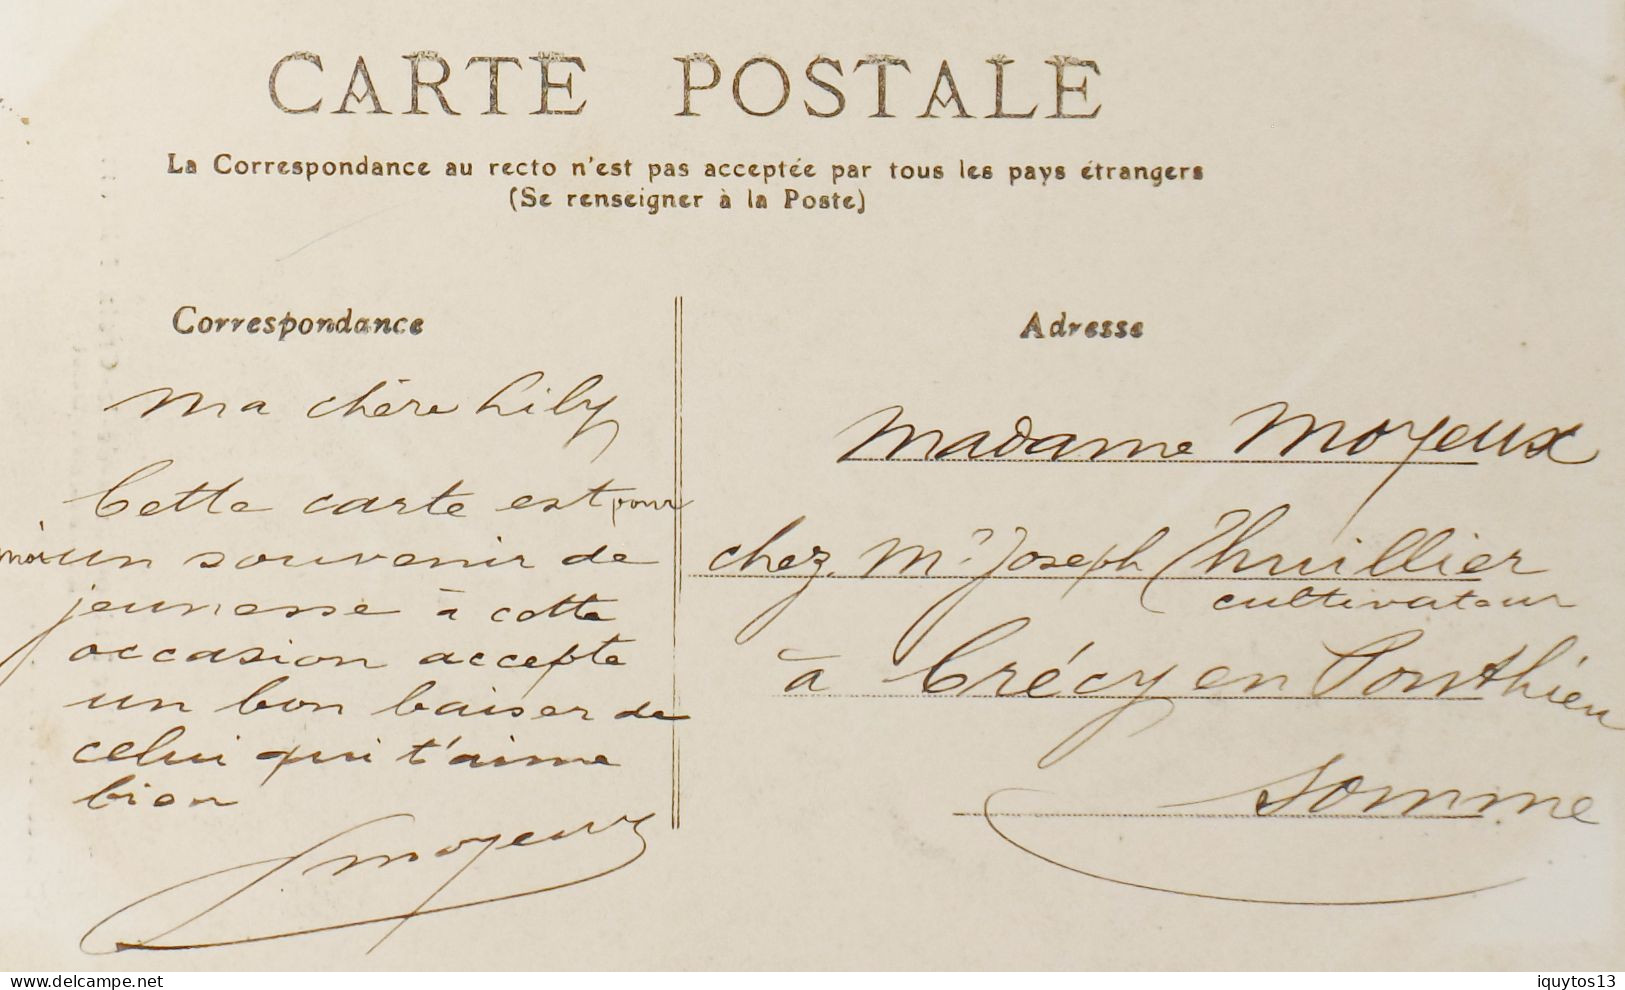 CARTE POSTALE
La Correspondance au recto n'est pas acceptée par tous les pays étrangers
(Se renseigner à la Poste)
Correspondance
Ma chère Lily
Cette carte est pour
moi un souvenir de
jeunesse à cette
occasion accepte
un bon baiser de
celui qui t'aime
bien
Moyeux
Adresse
Madame Moyeux
chez Mr Joseph Thuillier
cultivateur
à Crécy en Ponthieu
Somme
www.delcampe.net
iquytos13